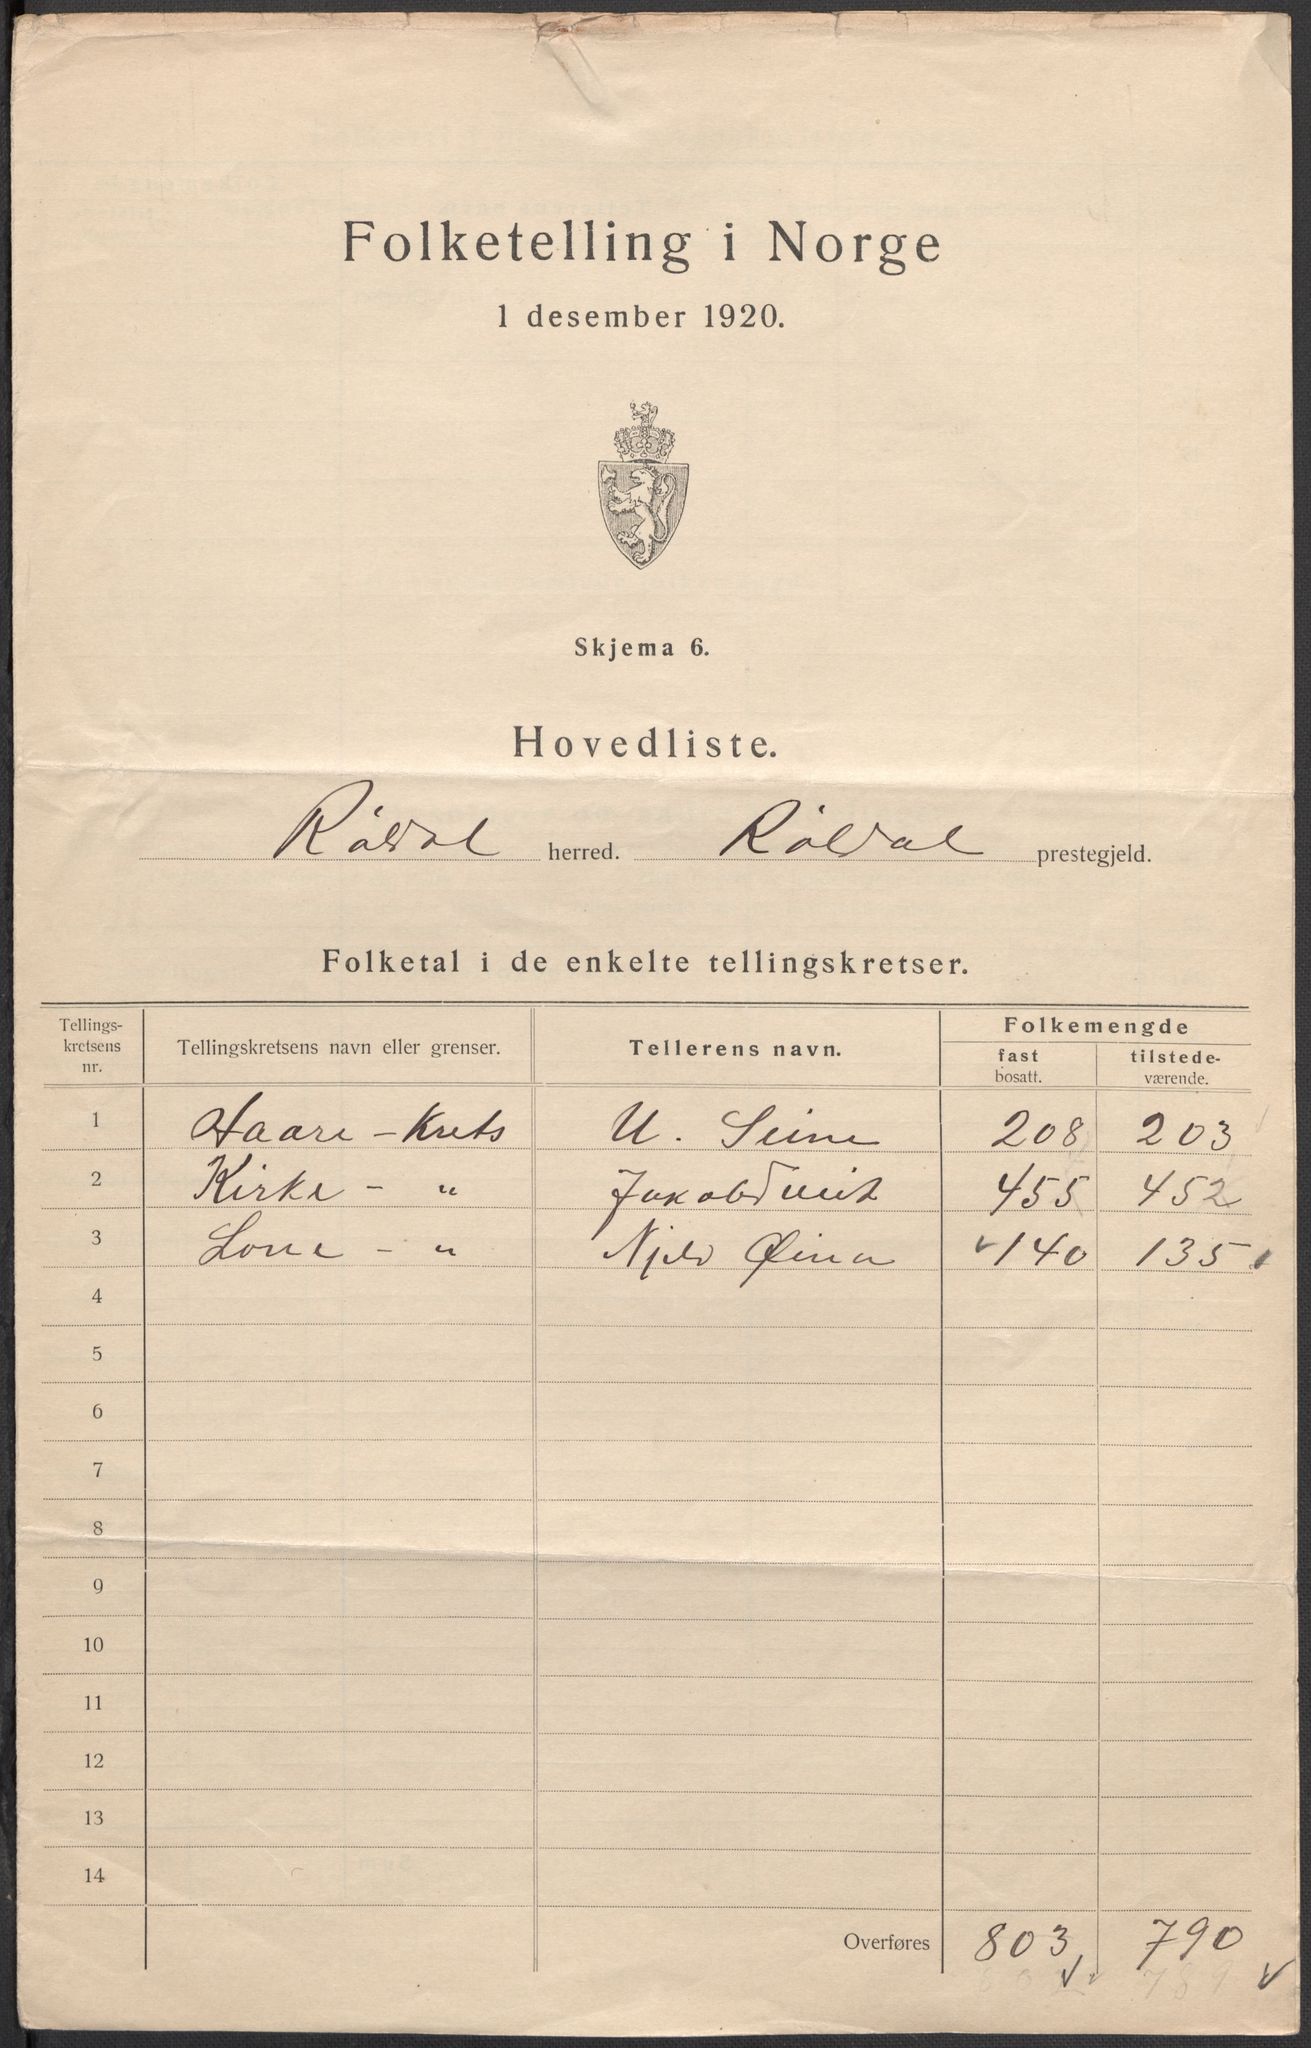 Folketelling i Norge
1 desember 1920.
Skjema 6.
Hovedliste.
Røldal herred. Røldal prestegjeld.
Folketal i de enkelte tellingskretser.
Tellings-kretsens nr. Tellingskretsens navn eller grenser. Tellerens navn. Folkemengde fast bosatt. tilstede-værende.
1 Haare - Krets U. Seim 208 203
2 Kirke - " 455 452
3 Lone - " 140 135
4
5
6
7
8
9
10
11
12
13
14
Overføres 803 790